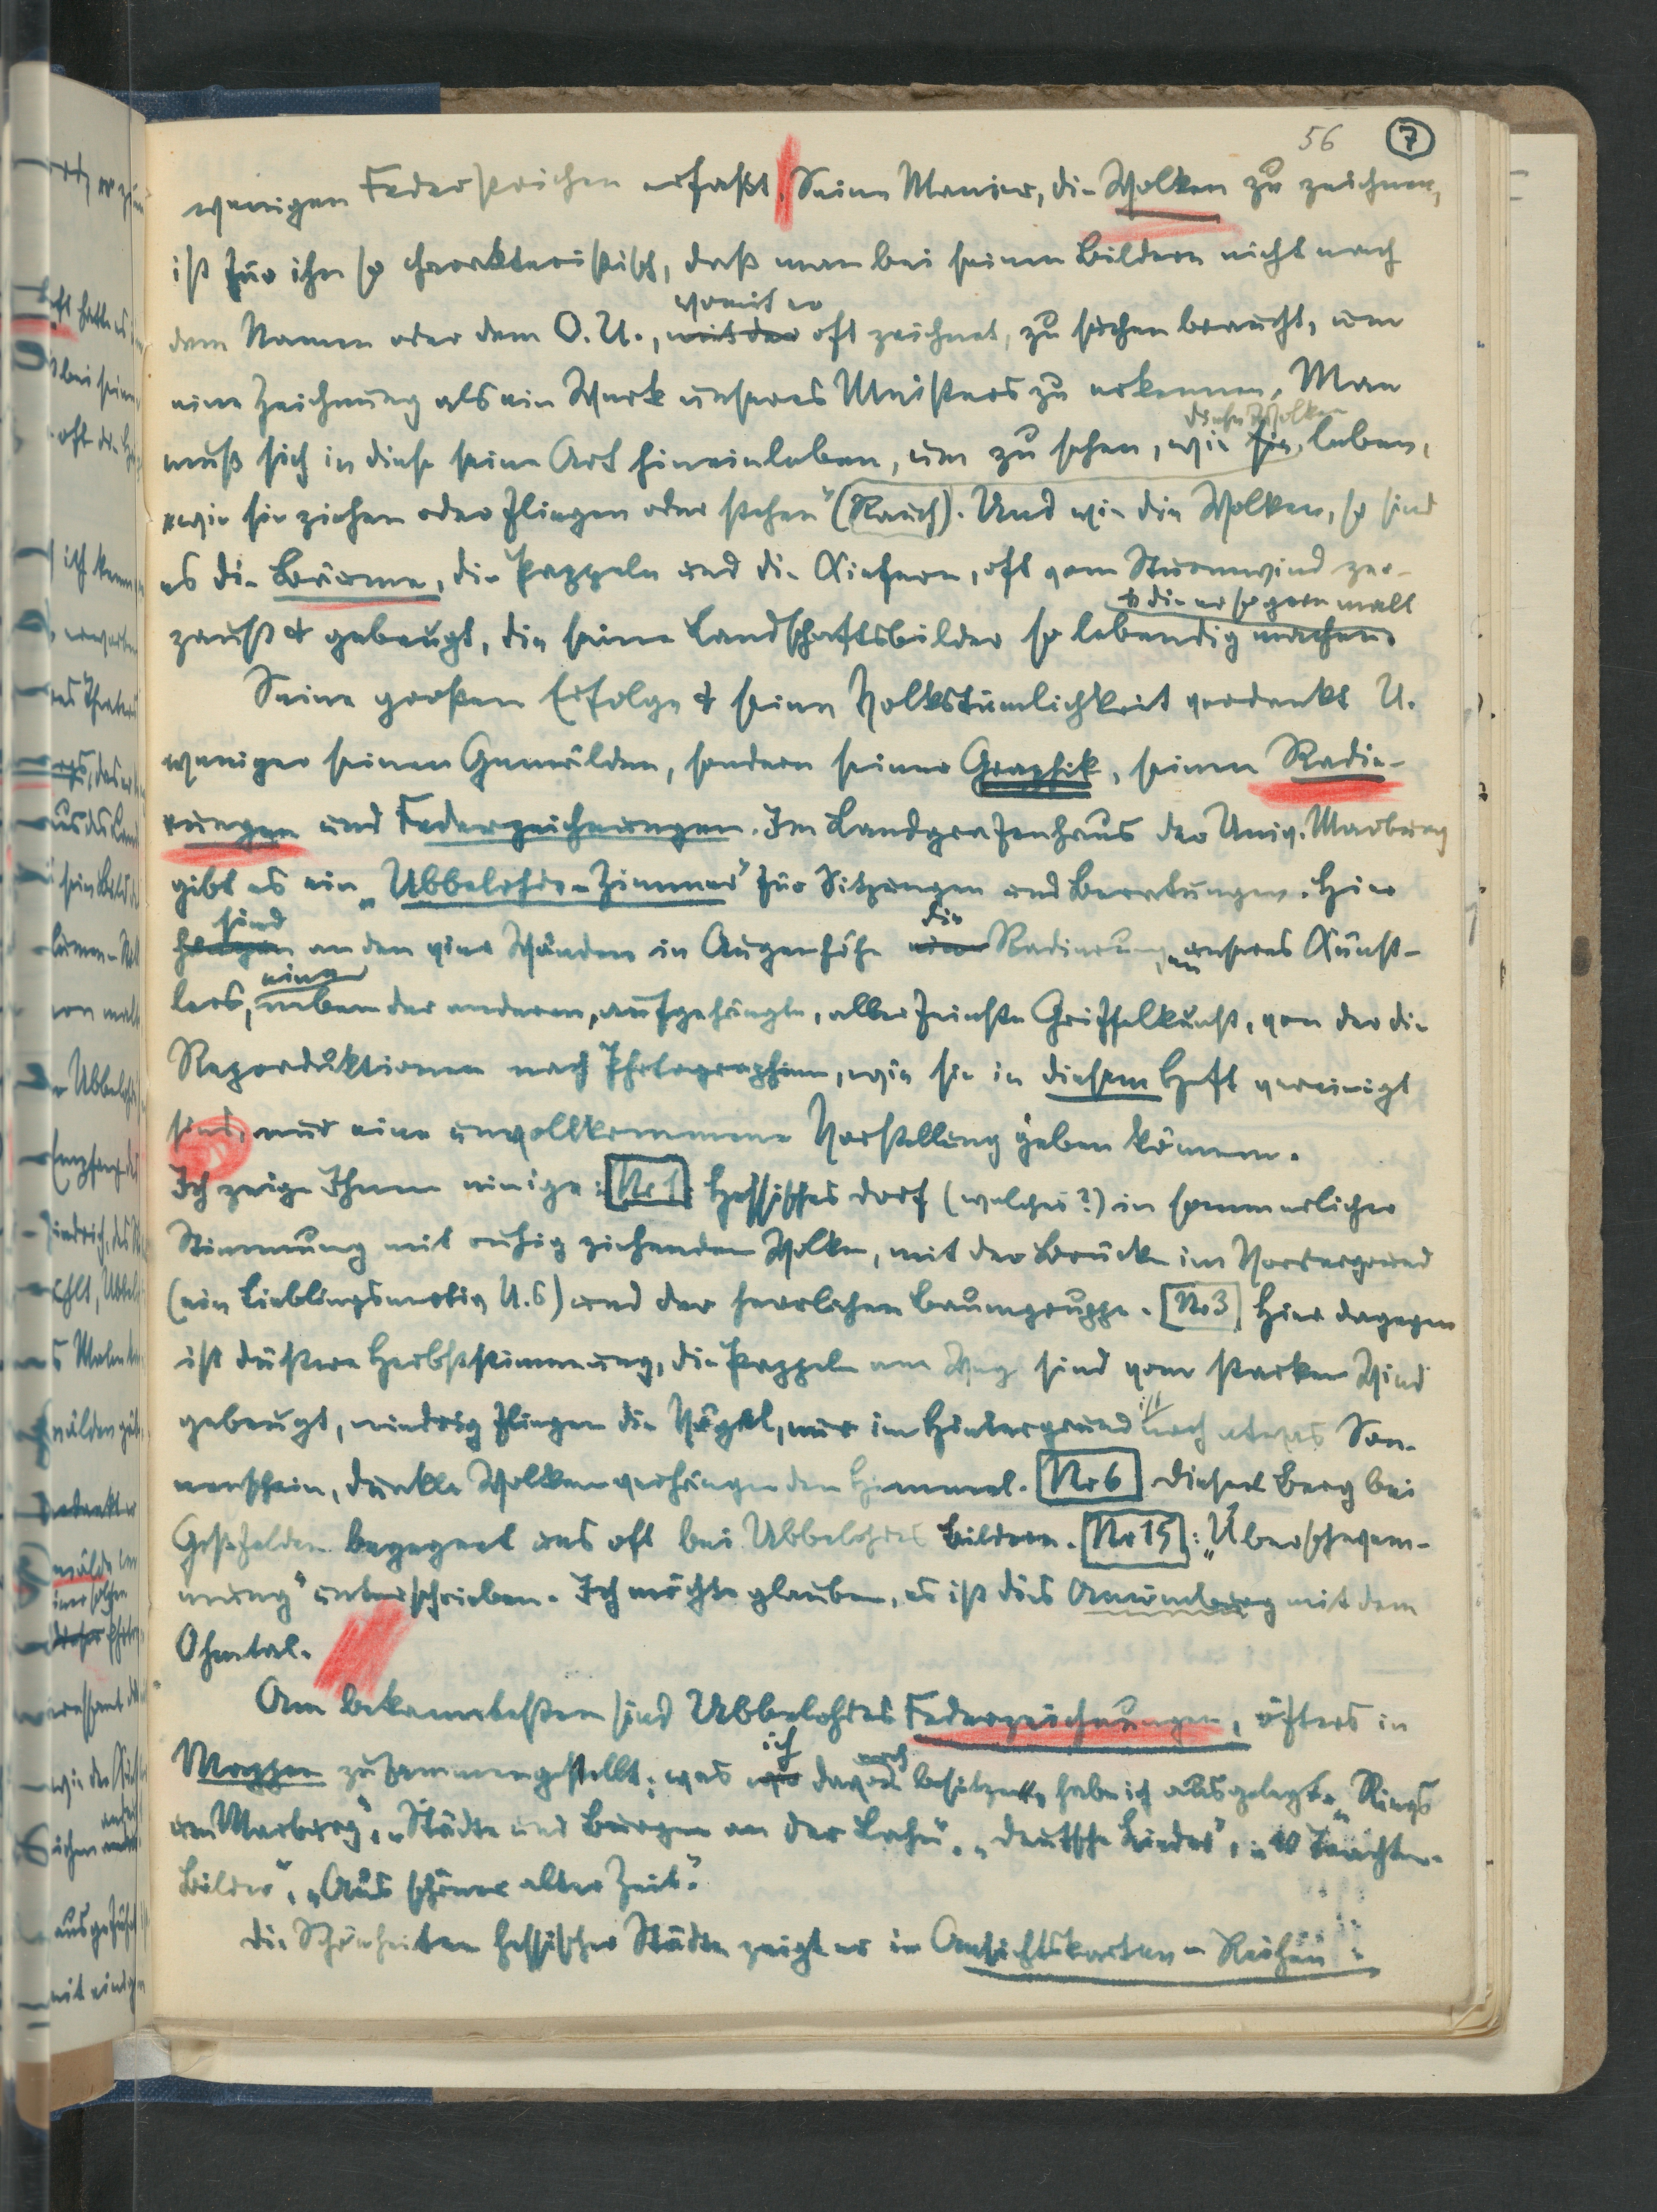 56 7
wenigen Federstrichen erfaßt. Seine Manier, die Wolken zu zeichnen,
ist für ihn so charakteristisch, daß man bei seinen Bildern nicht nach
womit er
dem Namen oder dem O. U., mit der oft zeichnet, zu suchen braucht, um
eine Zeichnung als ein Werk unseres Meisters zu erkennen. Man
diese Wolken
muß sich in diese seine Art hineinleben, um zu sehen, wie sie leben,
„wie sie ziehen oder fliegen oder stehen" (Rauch). Und wie die Wolken, so sind
es die Bäume, die Pappeln und die Kiefern, oft vom Sturmwind zer-
& die er so gern malt
zaust & gebeugt, die seine Landschaftsbilder so lebendig machen.
Seine großen Erfolge & seine Volkstümlichkeit verdankt U.
weniger seinen Gemälden, sondern seiner Graphik, seinen Radie-
rungen und Federzeichnungen. Im Landgrafenhaus der Univ. Marburg
gibt es ein „Ubbelohde-Zimmer" für Sitzungen und Beratungen. Hier
sind die
hängen an den vier Wänden in Augenhöhe eine Radierungen unseres Künst-
eine
lers, neben der anderen, aufgehängt, allerfeinste Griffelkunst, von der die
Reproduktionen nach Photographien, wie sie in diesem Heft vereinigt
sind, nur eine unvollkommene Vorstellung geben können.
Ich zeige Ihnen einige: Nr 1: Hessisches Dorf (welches?) in sommerlicher
Stimmung mit ruhig ziehenden Wolken, mit der Brücke im Vordergrund
(ein Lieblingsmotiv U.s) und der herrlichen Baumgruppe. Nr 3 Hier dagegen
ist düstere Herbststimmung, die Pappeln am Weg sind vom starken Wind
ist
gebeugt, niedrig fliegen die Vögel, nur im Hintergrund noch etwas Son-
nenschein, dunkle Wolken verhängen den Himmel. Nr 6 Dieser Berg bei
Goßfelden begegnet uns oft bei Ubbelohdes Bildern. Nr 15: „Überschwem-
mung" unterschrieben. Ich möchte glauben, es ist dies Amöneburg mit dem
Ohmtal.
Am bekanntesten sind Ubbelohdes Federzeichnungen, öfters in
ich noch
Mappen zusammengestellt; was wir davon besitze, habe ich ausgelegt: „Rings
um Marburg", „Städte und Burgen an der Lahn", „Deutsche Lieder", „10 Trachten-
Bilder", „Aus schöner alter Zeit".
Die Schönheiten hessischer Städte zeigt er in Ansichtskarten-Reihen: